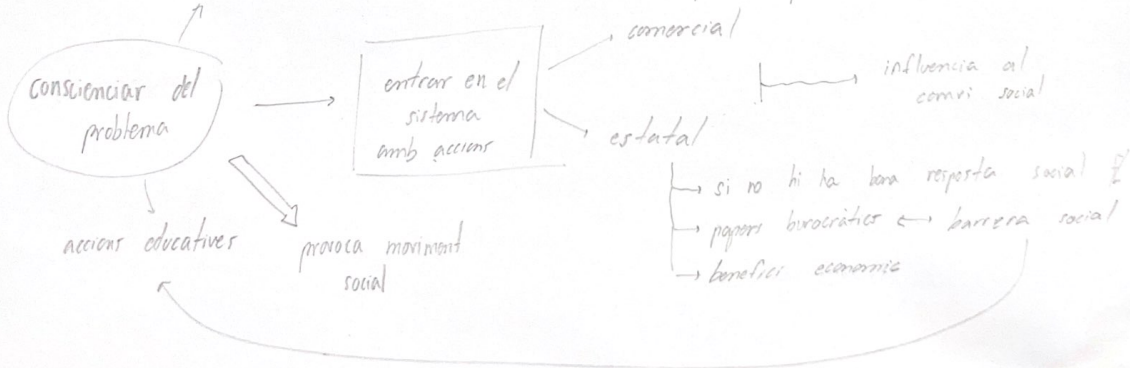 conscienciar del
problema
entrar en el
sistema
amb accions
comercial
influencia al
comri social
estatal
si no hi ha bona resposta social
papers burocràtics ↔ barrera social
benefici economic
accions educatives
provoca moviment
social